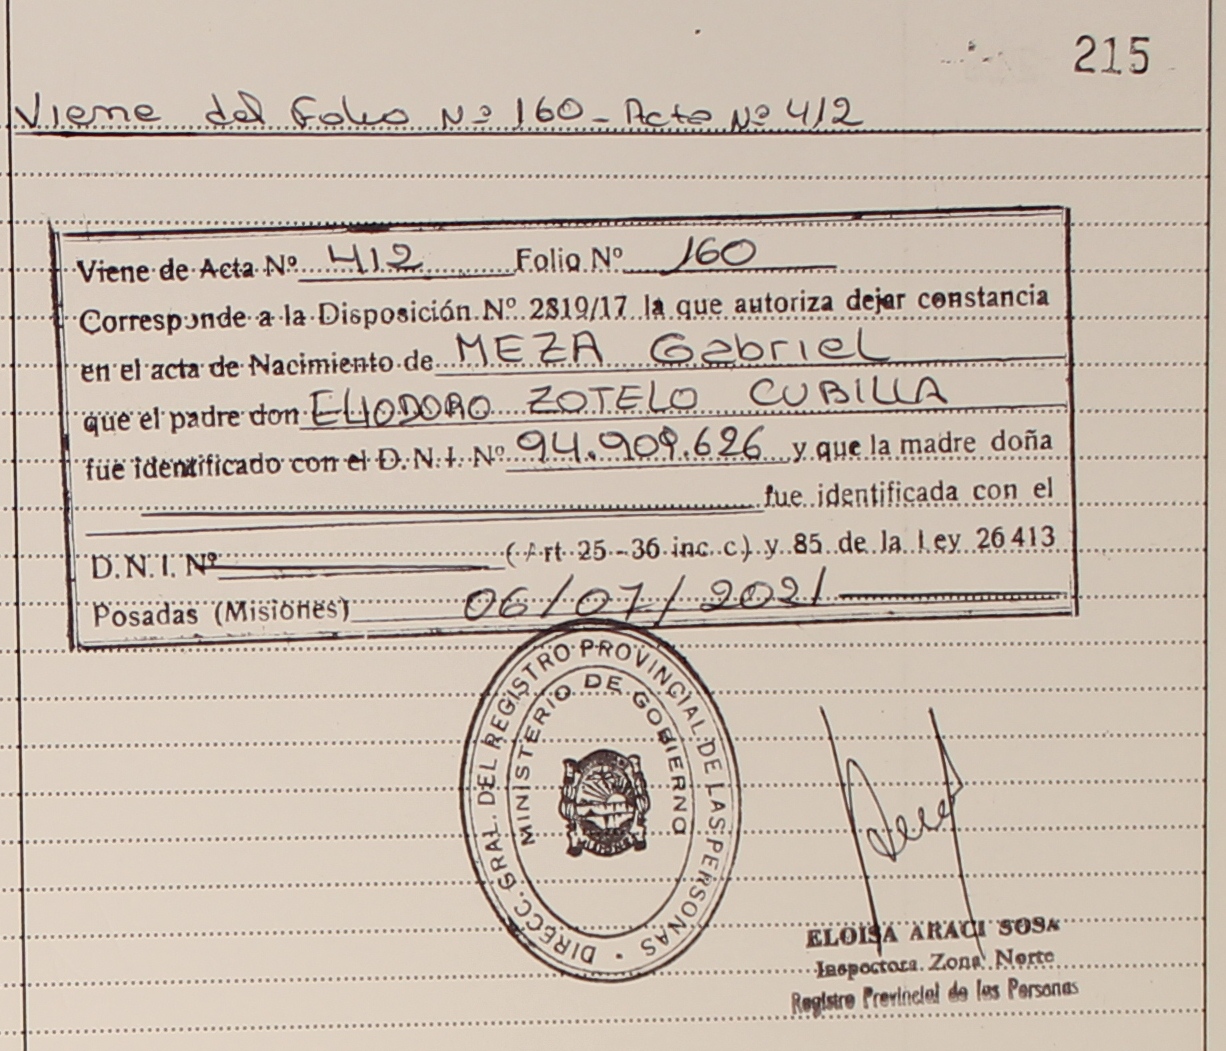 215
Viene del Folio Nº 160 - Acta Nº 412
Viene de Acta Nº 412 Folio Nº 160
Corresponde a la Disposición Nº 2819/17 la que autoriza dejar constancia
en el acta de Nacimiento de MEZA Gabriel
que el padre don ELIODORO ZOTELO CUBILLA
fue identificado con el D.N.I. Nº 94.909.626 y que la madre doña
fue identificada con el
D.N.I. Nº (Art. 25-36 inc. c) y 85 de la Ley 26413
Posadas (Misiones) 06/07/2021
DIRECC. GRAL. DEL REGISTRO PROVINCIAL DE LAS PERSONAS
MINISTERIO DE GOBIERNO
MISIONES
ELOISA ARACI SOSA
Inspectora Zona Norte
Registro Provincial de las Personas